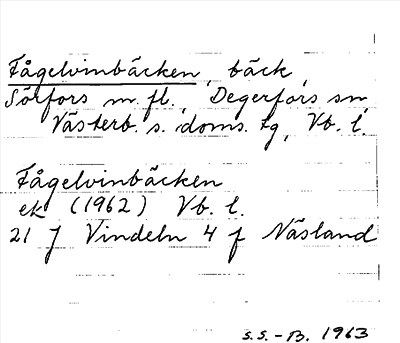 Fågelvinbäcken, bäck,
Sörfors m. fl., Degerfors sn,
Västerb. s. doms. tg, Vb. l.
Fågelvinbäcken
ek (1962) Vb. l.
21 J Vindeln 4 f Näsland
S.S.-B. 1963